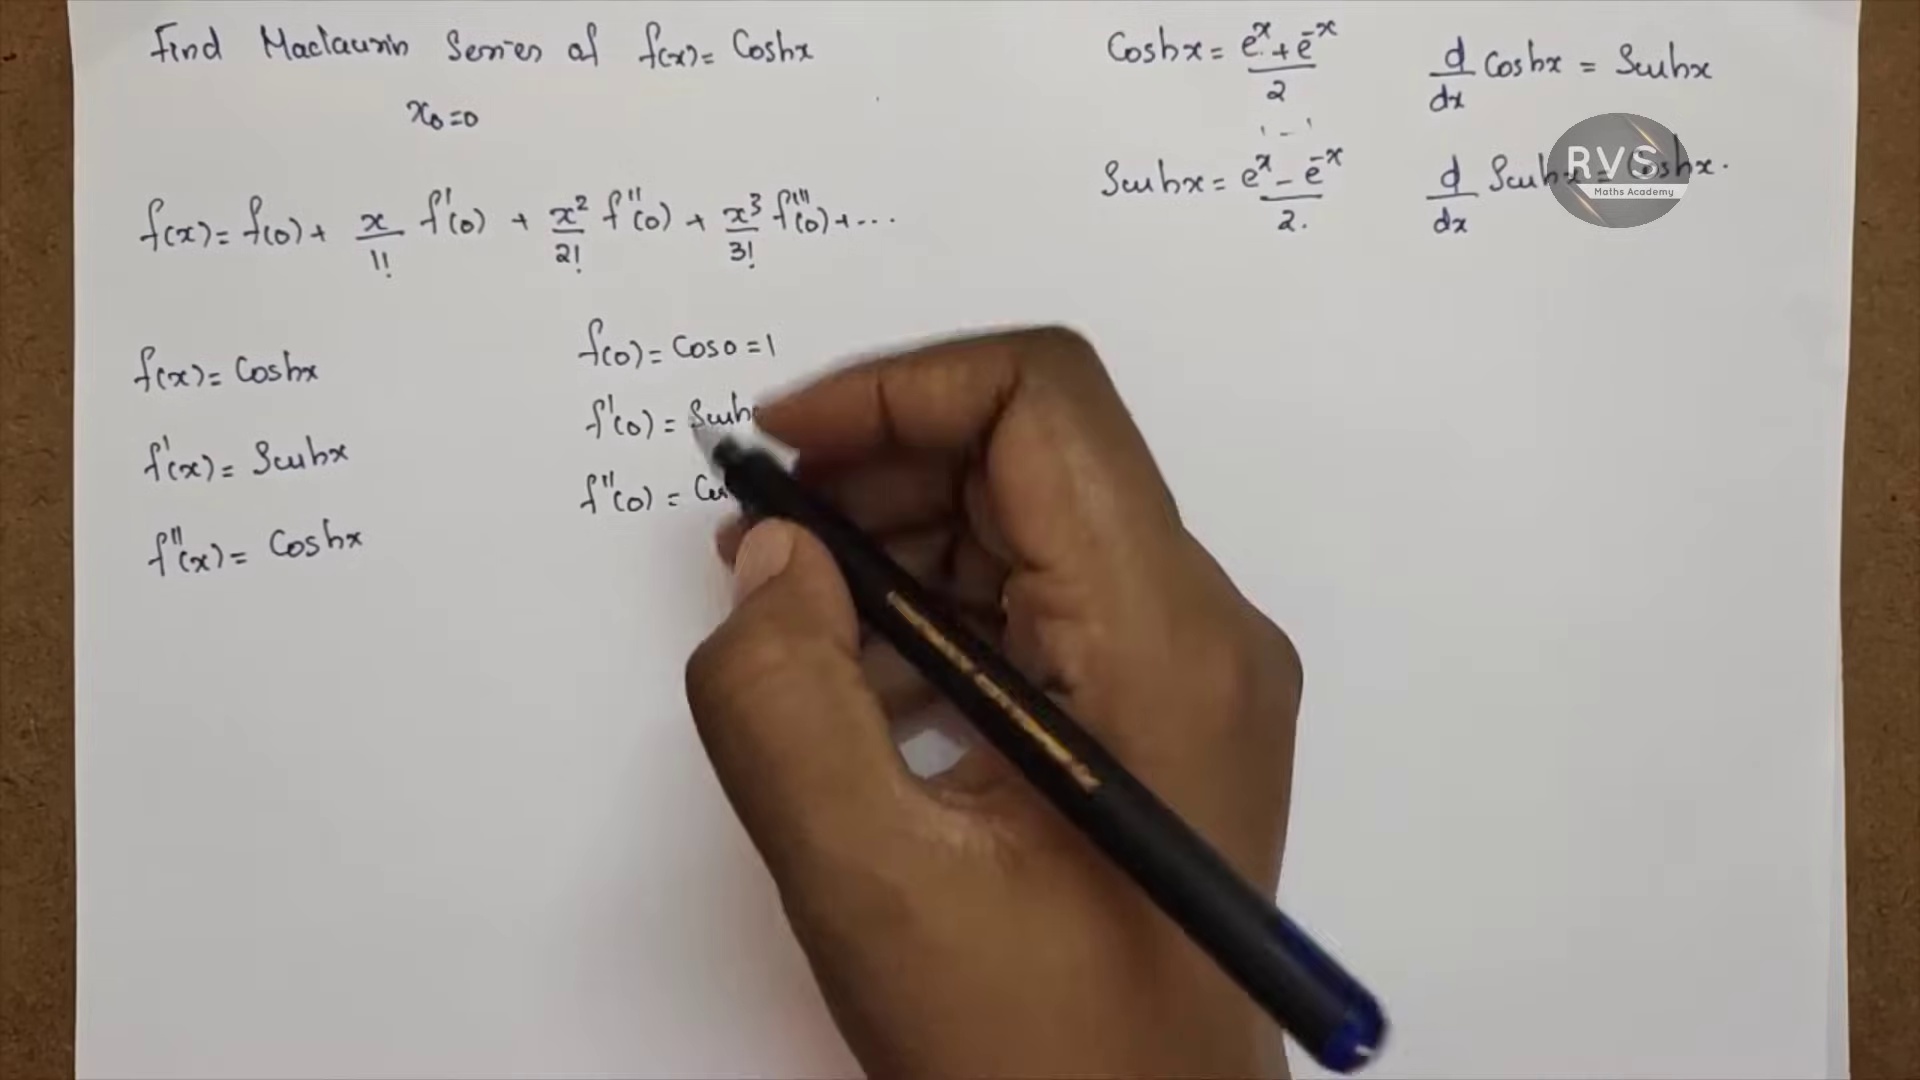 Find Maclaurin Series of f(x) = Coshx
x₀=0
f(x) = f(0) + x/1! f'(0) + x²/2! f''(0) + x³/3! f'''(0) + ...
f(x) = Coshx
f'(x) = Sinhx
f''(x) = Coshx
f(0) = Cos0 = 1
f'(0) = Sinh
f''(0) =
Coshx = (e^x + e^-x)/2
Sinhx = (e^x - e^-x)/2.
d/dx Coshx = Sinhx
d/dx Sinhx = Coshx.
RVS
Maths Academy